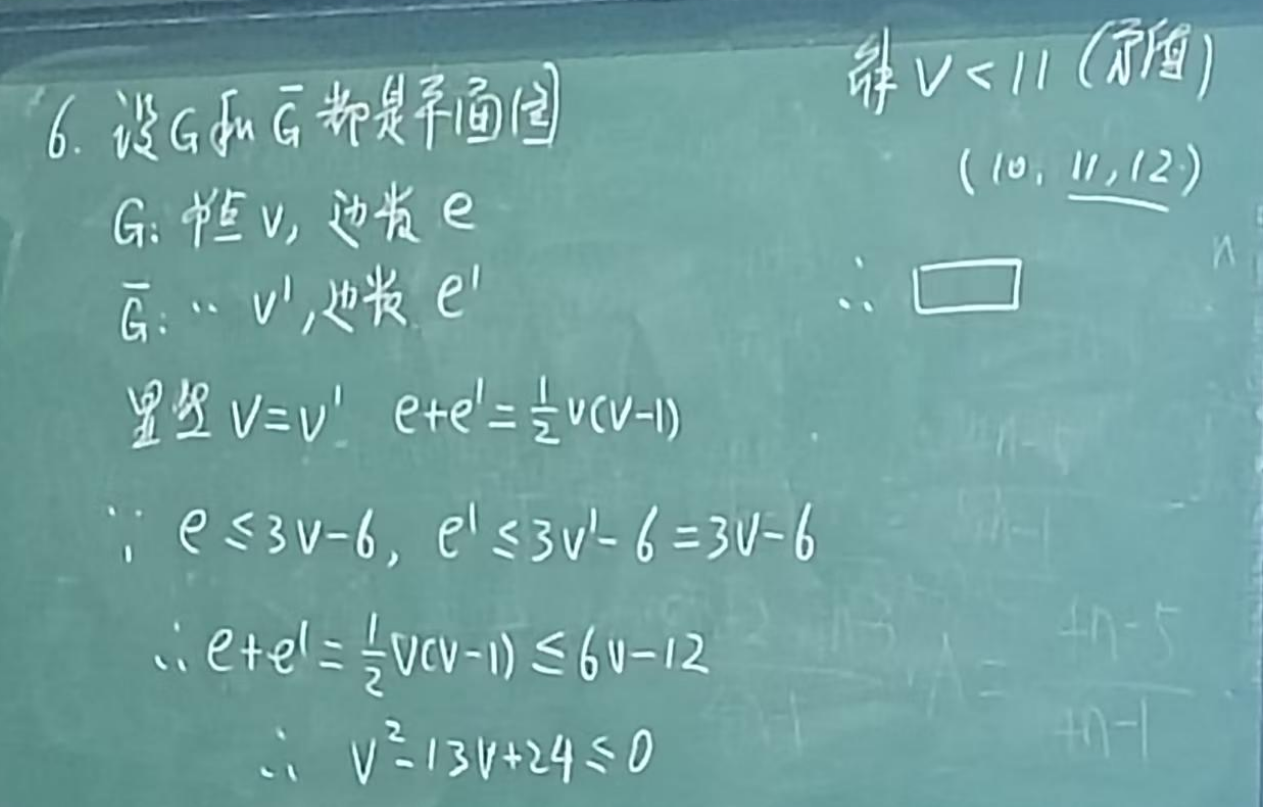 6. 设G和Ḡ都是平面图
G: 节点 v, 边数 e
Ḡ: ‥ v', 边数 e'
显然 v=v' e+e'=½v(v-1)
∵ e≤3v-6, e'≤3v'-6=3v-6
∴ e+e'=½v(v-1)≤6v-12
∴ v²-13v+24≤0
解 v<11 (矛盾)
(10, 11, 12)
∴
n